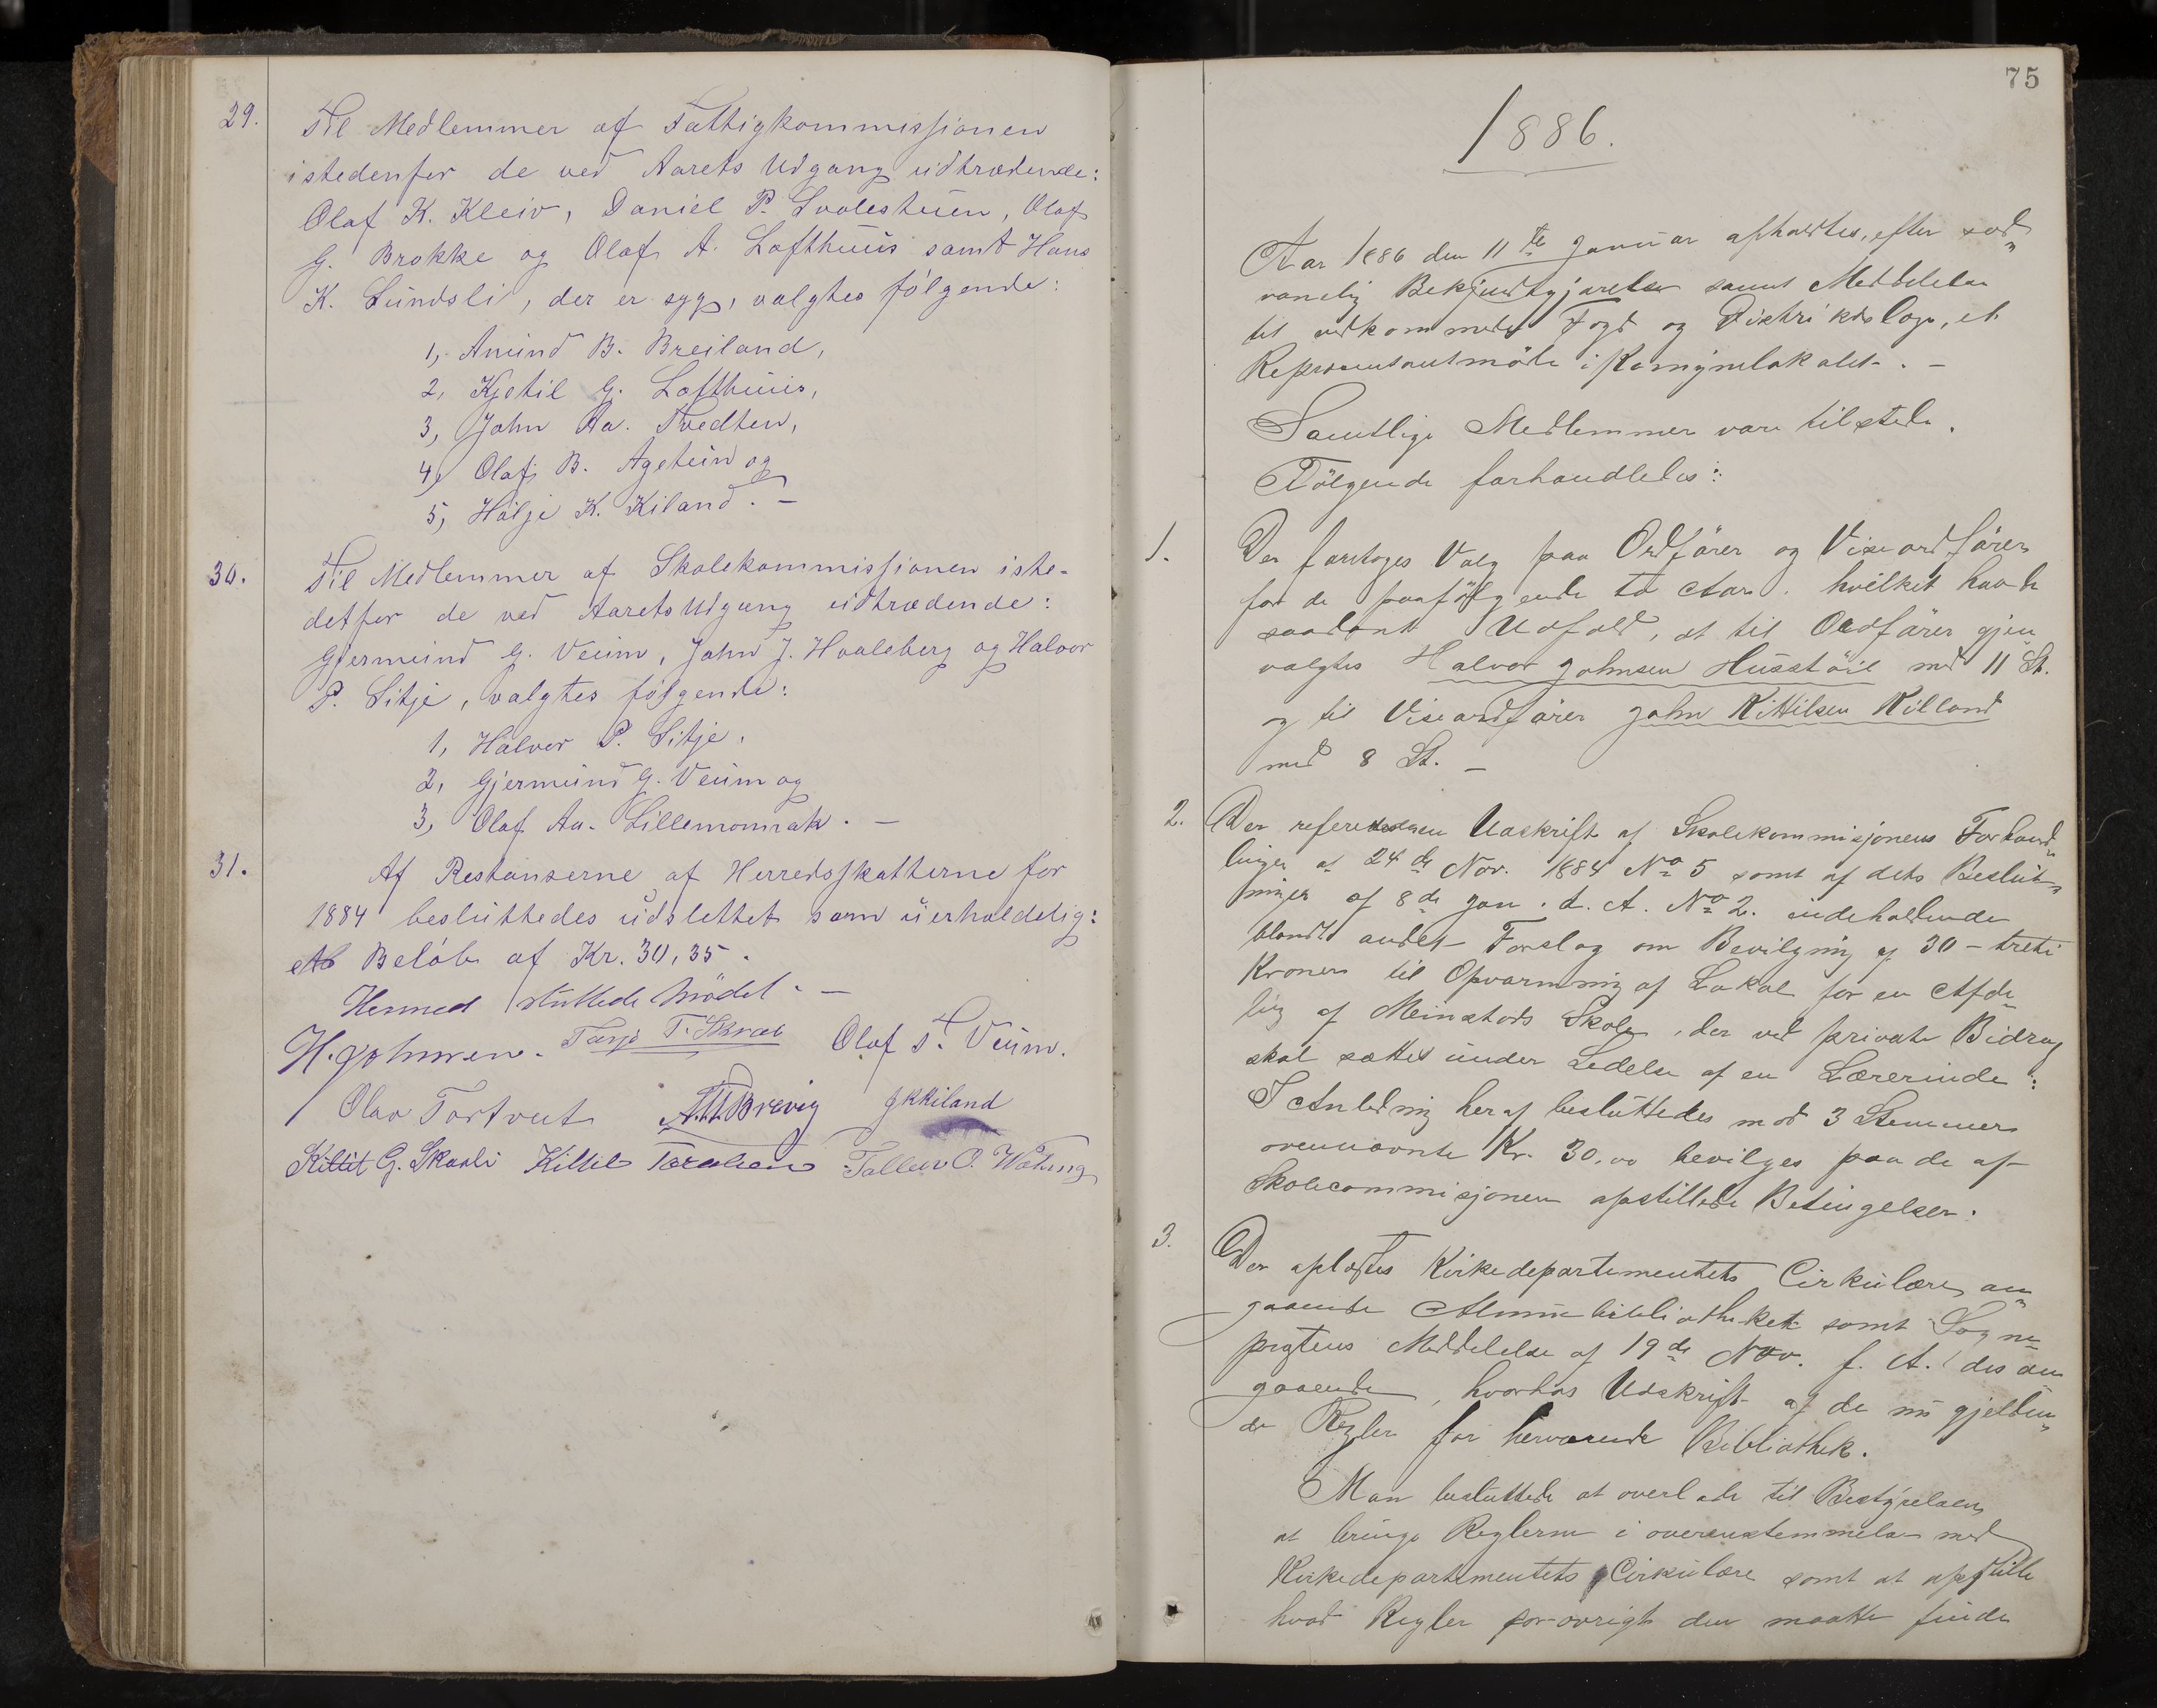 29.
Til Medlemmer af Fattigkommissionen
istedenfor de ved Aarets Udgang udtrædende:
Olaf K. Kleiv, Daniel P. Svalestuen, Olaf
G. Brokke og Olaf A. Lofthuus samt Hans
K. Lundsli, der er syg, valgtes følgende:
1, Anund B. Breiland,
2, Kjetil G. Lofthuus,
3, John Aa. Tvedten,
4, Olaf B. Agetun og
5, Hålje K. Kiland. –
30.
Til Medlemmer af Skolekommissionen iste-
detfor de ved Aarets Udgang udtrædende:
Gjermund G. Veum, John J. Hvaleberg og Halvor
P. Sitje, valgtes følgende:
1, Halvor P. Sitje,
2, Gjermund G. Veum og
3, Olaf Aa. Lillemomrak. –
31.
Af Restanserne af Herredsskatterne for
1884 besluttedes udslettet som uerholdelig:
et Beløb af Kr. 30,35.
Hermed sluttede Mødet. –
H. Johnsen. Tarje T. Olaf T. Veum.
Olav Tortveit JKKiland
Kittil G. Skaali Kittil Tallev O.
75
1886.
Aar 1886 den 11te Januar afholdtes, efter sæd„
vanlig Bekjendtgjørelse samt Meddelelse
til vedkommende Fogd og Distriktslæge, et
Repræsentantmøde i Komunelokalet. –
Samtlige Medlemmer vare tilstede.
Følgende forhandledes:
1.
Der foretoges Valg paa Ordfører og Viseordfører
for de paafølgende to Aar, hvilket havde
saadant Udfald, at til Ordfører gjen
valgtes Halvor Johnsen Husstøil med 11 St.
og til Viseordfører John Kittilsen Killand
med 8 St. –
2.
Der refereredes en Udskrift af Skolekommisjonens Forhand„
linger af 24de Nov. 1884 No 5 samt af dets Beslut„
ninger af 8de Jan. d. A. No 2. indeholdende
blandt andet Forslag om Bevilgning af 30 – treti
Kroner til Opvarmning af Lokal for en Afde„
ling af Meinstads Skole, der ved private Bidrag
skal sættes under Ledelse af en Lærerinde:
I Anledning heraf besluttedes mod 3 Stemmer
ovennævnte Kr. 30.00 bevilges paa de af
Skolecommisjonen opstillede Betingelser.
3.
Der oplæstes Kirkedepartementets Cirkulære an„
gaaende Almuebibliotheket samt Sogne„
prestens Meddelelse af 19de Nov. f. A. des an
gaaende, hvorhos Udskrift af de nu gjelden„
de Regler for herværende Bibliothek.
Man besluttede at overlade til Bestyrelsen
at bringe Reglerne i overensstemmelse med
Kirkedepartementets Cirkulære samt at opstille
hvad Regler forøvrigt den maatte finde